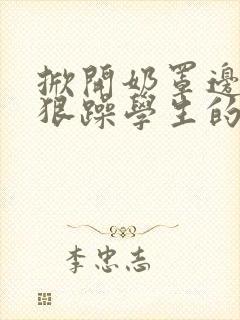 掀開奶罩邊
狠躁學生的
李忠志